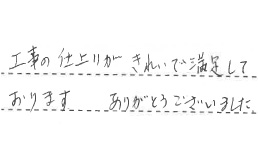 工事の仕上りが きれいで満足して
おります  ありがとうございました。